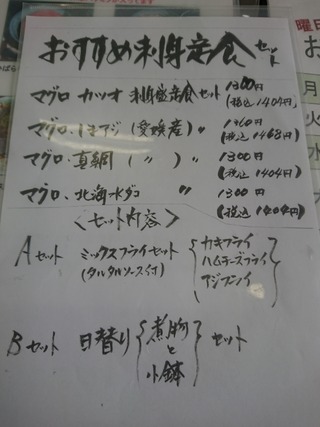 おすすめ刺身定食セット
マグロ カツオ 刺身盛定食セット 1300円
(税込1404円)
マグロ・しまアジ(愛媛産) 〃 1360円
(税込1468円)
マグロ・真鯛(〃) 〃 1300円
(税込1404円)
マグロ、北海水ダコ 〃 1300円
(税込1404円)
〈セット内容〉
Aセット ミックスフライセット
(タルタルソース付)
カキフライ
ハムチーズフライ
アジフライ
Bセット 日替り 煮物と小鉢 セット
曜日
月
火
水